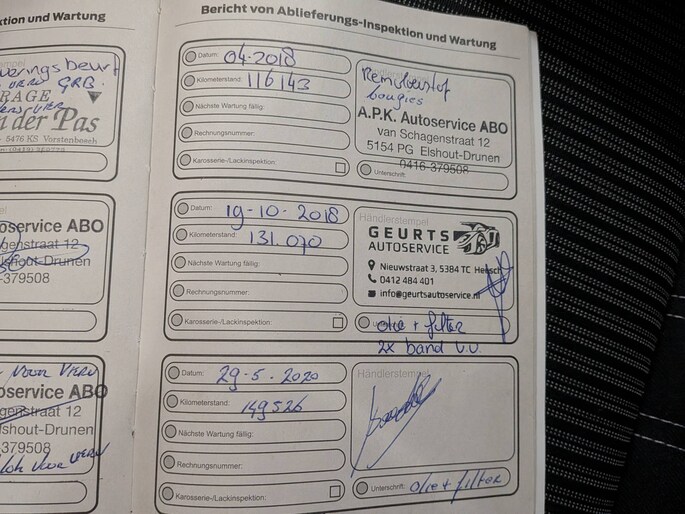 ktion und Wartung
GRB.
RAGE
n der Pas
5476 KS Vorstenbosch
oservice ABO
genstraat 12
lshout-Drunen
-379508
oservice ABO
genstraat 12
shout-Drunen
-379508
Bericht von Ablieferungs-Inspektion und Wartung
Datum: 04-2018
Kilometerstand: 116143
Nächste Wartung fällig:
Rechnungsnummer:
Karosserie-/Lackinspektion:
Remvloeistof
bougies
A.P.K. Autoservice ABO
van Schagenstraat 12
5154 PG Elshout-Drunen
0416-379508
Unterschrift:
Datum: 19-10-2018
Kilometerstand: 131.070
Nächste Wartung fällig:
Rechnungsnummer:
Karosserie-/Lackinspektion:
Händlerstempel
GEURTS
AUTOSERVICE
Nieuwstraat 3, 5384 TC Heesch
0412 484 401
info@geurtsautoservice.nl
olie + filter
2x band v.v.
Datum: 29-5-2020
Kilometerstand: 149526
Nächste Wartung fällig:
Rechnungsnummer:
Karosserie-/Lackinspektion:
Händlerstempel
Unterschrift: olie + filter